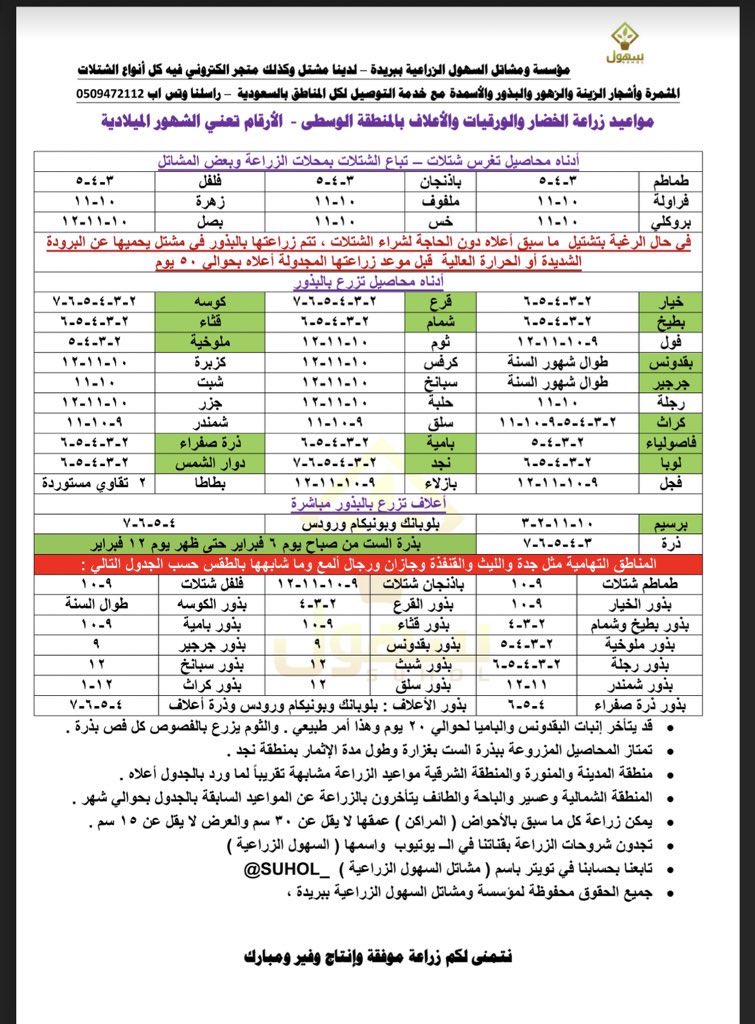 سهول
SUHOL
مؤسسة ومشاتل السهول الزراعية ببريدة – لدينا مشتل وكذلك متجر الكتروني فيه كل أنواع الشتلات
المثمرة وأشجار الزينة والزهور والبذور والأسمدة مع خدمة التوصيل لكل المناطق بالسعودية – راسلنا وتس اب 0509472112
مواعيد زراعة الخضار والورقيات والأعلاف بالمنطقة الوسطى - الأرقام تعني الشهور الميلادية
أدناه محاصيل تغرس شتلات – تباع الشتلات بمحلات الزراعة وبعض المشاتل
طماطم ٣-٤-٥ باذنجان ٣-٤-٥ فلفل ٣-٤-٥
فراولة ١٠-١١ ملفوف ١٠-١١ زهرة ١٠-١١
بروكلي ١٠-١١ خس ١٠-١١ بصل ١٠-١١-١٢
في حال الرغبة بتشتيل ما سبق أعلاه دون الحاجة لشراء الشتلات ، تتم زراعتها بالبذور في مشتل يحميها عن البرودة
الشديدة أو الحرارة العالية قبل موعد زراعتها المجدولة أعلاه بحوالي ٥٠ يوم
أدناه محاصيل تزرع بالبذور
خيار ٢-٣-٤-٥-٦ قرع ٢-٣-٤-٥-٦-٧ كوسه ٢-٣-٤-٥-٦-٧
بطيخ ٢-٣-٤-٥-٦ شمام ٢-٣-٤-٥-٦ قثاء ٢-٣-٤-٥-٦
فول ٩-١٠-١١-١٢ ثوم ١٠-١١-١٢ ملوخية ٢-٣-٤-٥
بقدونس طوال شهور السنة كرفس ١٠-١١-١٢ كزبرة ١٠-١١-١٢
جرجير طوال شهور السنة سبانخ ١٠-١١-١٢ شبت ١٠-١١
رجلة ١٠-١١ حلبة ١٠-١١-١٢ جزر ١٠-١١-١٢
كراث ٢-٣-٤-٥-٩-١٠-١١ سلق ٩-١٠-١١ شمندر ٩-١٠-١١
فاصولياء ٢-٣-٤-٥ بامية ٢-٣-٤-٥-٦ ذرة صفراء ٢-٣-٤-٥-٦
لوبا ٢-٣-٤-٥-٦ نجد ٢-٣-٤-٥-٦-٧ دوار الشمس ٢-٣-٤-٥-٦
فجل ٩-١٠-١١-١٢ بازلاء ٩-١٠-١١-١٢ بطاطا ٢ تقاوي مستوردة
أعلاف تزرع بالبذور مباشرة
برسيم ١٠-١١-٢-٣ بلوبانك وبونيكام ورودس ٤-٥-٦-٧
ذرة ٣-٤-٥-٦-٧ بذرة الست من صباح يوم ٦ فبراير حتى ظهر يوم ١٢ فبراير
المناطق التهامية مثل جدة والليث والقنفذة وجازان ورجال ألمع وما شابهها بالطقس حسب الجدول التالي :
طماطم شتلات ٩-١٠ باذنجان شتلات ٩-١٠-١١-١٢ فلفل شتلات ٩-١٠
بذور الخيار ٩-١٠ بذور القرع ٢-٣-٤ بذور الكوسه طوال السنة
بذور بطيخ وشمام ٢-٣-٤ بذور قثاء ٩-١٠ بذور بامية ٩-١٠
بذور ملوخية ٢-٣-٤-٥ بذور بقدونس ٩ بذور جرجير ٩
بذور رجلة ٢-٣-٤-٥-٦ بذور شبث ١٢ بذور سبانخ ١٢
بذور شمندر ١١-١٢ بذور سلق ١٢ بذور كراث ١-١٢
بذور ذرة صفراء ٤-٥-٦ بذور الأعلاف : بلوبانك وبونيكام ورودس وذرة أعلاف ٤-٥-٦-٧
• قد يتأخر إنبات البقدونس والباميا لحوالي ٢٠ يوم وهذا أمر طبيعي . والثوم يزرع بالفصوص كل فص بذرة .
• تمتاز المحاصيل المزروعة ببذرة الست بغزارة وطول مدة الإثمار بمنطقة نجد .
• منطقة المدينة والمنورة والمنطقة الشرقية مواعيد الزراعة مشابهة تقريباً لما ورد بالجدول أعلاه .
• المنطقة الشمالية وعسير والباحة والطائف يتأخرون بالزراعة عن المواعيد السابقة بالجدول بحوالي شهر .
• يمكن زراعة كل ما سبق بالأحواض ( المراكن ) عمقها لا يقل عن ٣٠ سم والعرض لا يقل عن ١٥ سم .
• تجدون شروحات الزراعة بقناتنا في الــ يوتيوب واسمها ( السهول الزراعية )
• تابعنا بحسابنا في تويتر باسم ( مشاتل السهول الزراعية ) @SUHOL_
• جميع الحقوق محفوظة لمؤسسة ومشاتل السهول الزراعية ببريدة ،
نتمنى لكم زراعة موفقة وإنتاج وفير ومبارك